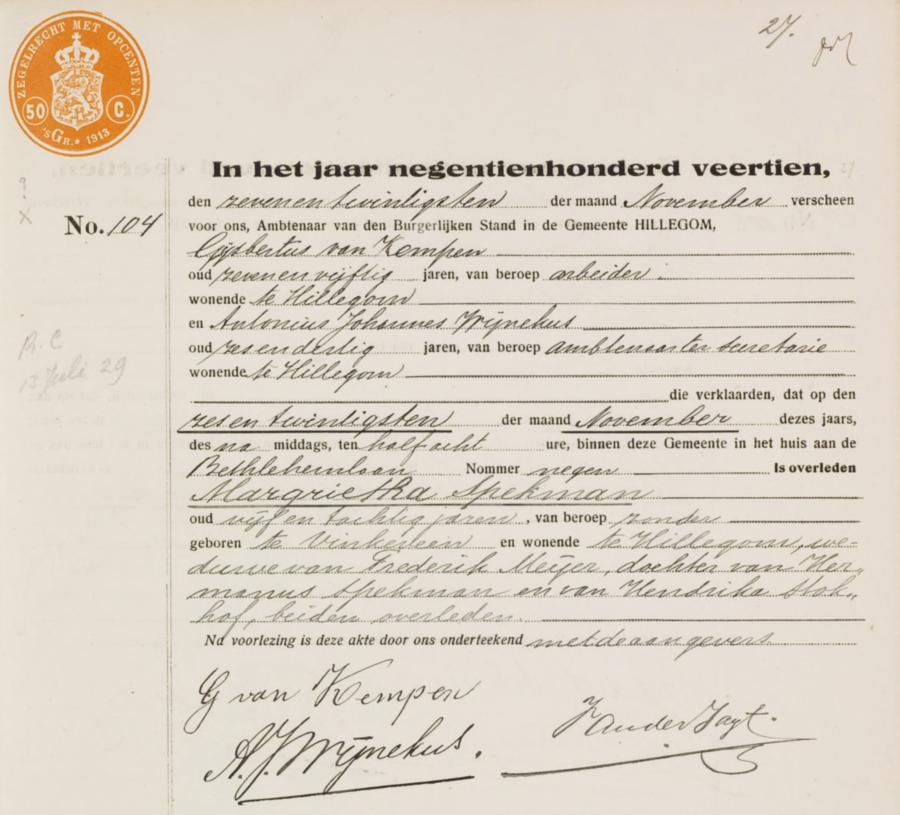 ZEGELRECHT MET OPCENTEN
50 C.
'sGR.* 1913
27.
In het jaar negentienhonderd veertien,
den zevenentwintigsten der maand November verscheen
No. 104
voor ons, Ambtenaar van den Burgerlijken Stand in de Gemeente HILLEGOM,
Gijsbertus van Kempen
oud zevenenvijftig jaren, van beroep arbeider.
wonende te Hillegom
en Antonius Johannes Wijnekus
oud zesendertig jaren, van beroep ambtenaar ter secretarie
wonende te Hillegom
R.C
13 Juli 29
die verklaarden, dat op den
zesentwintigsten der maand November dezes jaars,
des na middags, ten half acht ure, binnen deze Gemeente in het huis aan de
Bethlehemlaan Nommer negen is overleden
Margrietha Spekman
oud vijfentachtig jaren, van beroep zonder
geboren te Vinkeveen en wonende te Hillegom, we-
duwe van Frederik Meijer, dochter van Her-
manus Spekman en van Hendrika Stok-
hof, beiden overleden.
Na voorlezing is deze akte door ons onderteekend met de aangevers.
G van Kempen
A.J. Wijnekus.